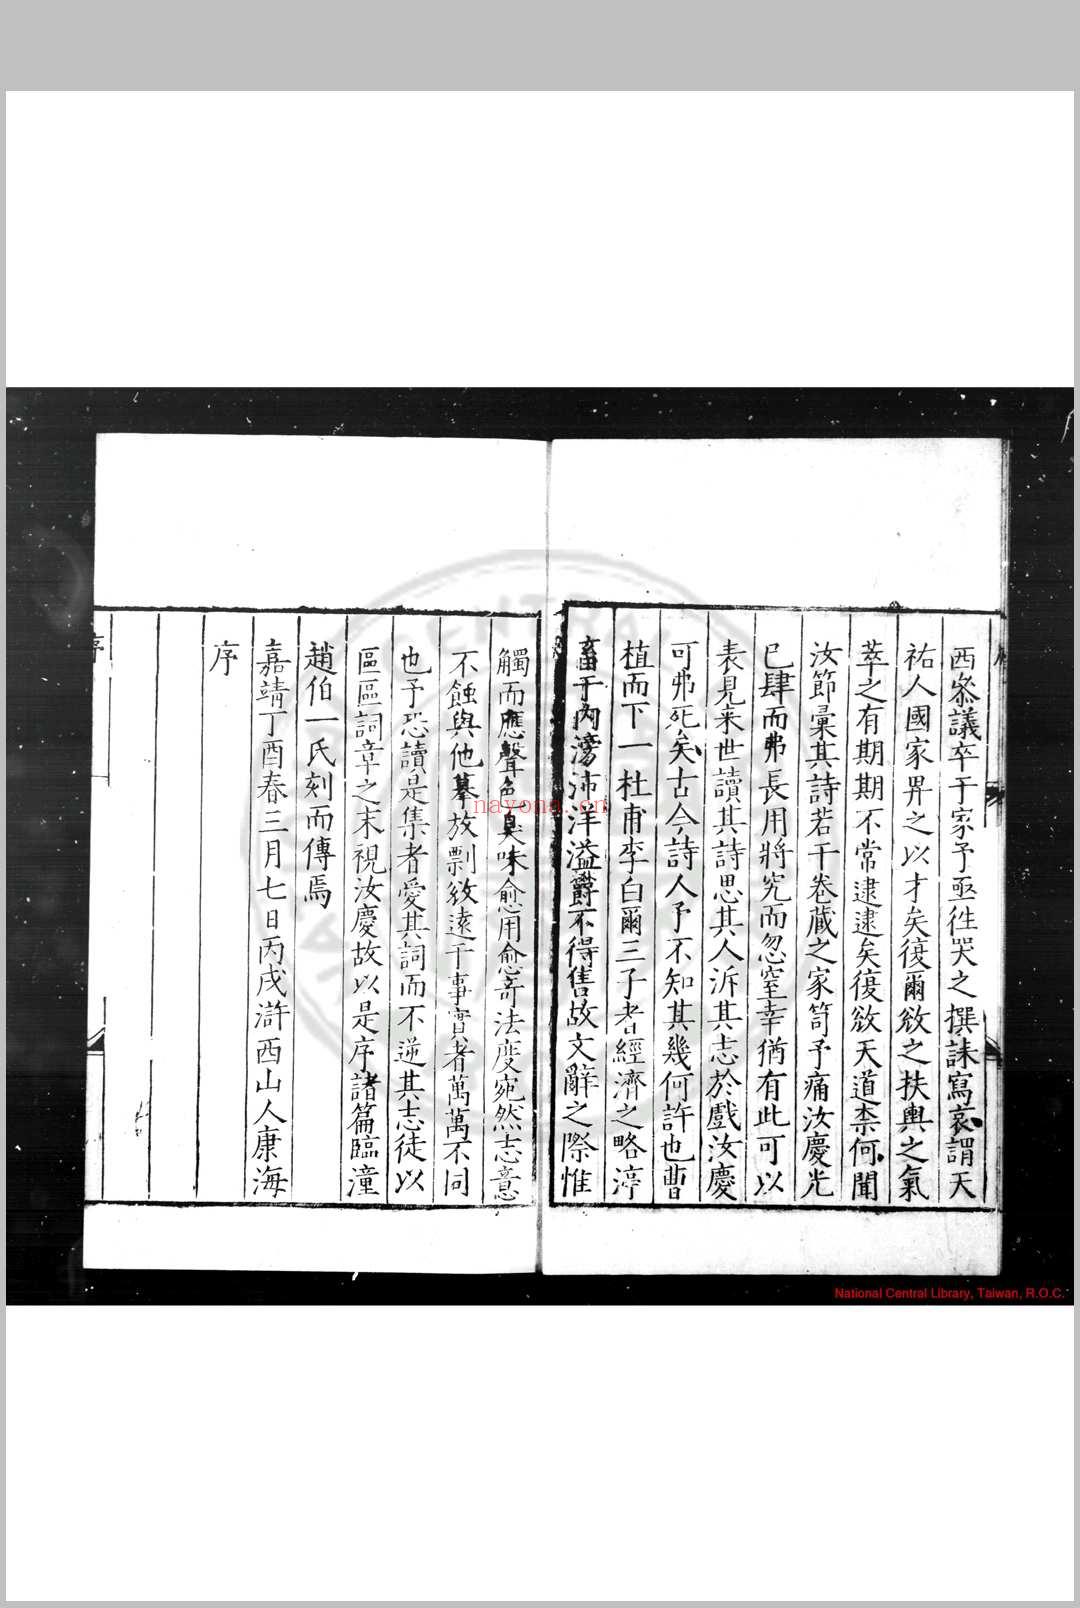 西叅議卒于家予亟徃哭之撰誄寫哀謂天
祐人國家畀之以才矣復爾敓之扶輿之氣
萃之有期期不常逮逮矣復敓天道柰何聞
汝節彙其詩若干卷藏之家笥予痛汝慶光
已肆而弗長用將究而忽窒幸猶有此可以
表見来世讀其詩思其人泝其志於戲汝慶
可弗死矣古今詩人予不知其幾何許也曹
植而下一杜甫李白爾三子者經濟之略渟
畜于内滂沛洋溢欝不得售故文辭之際惟
觸而應聲色臭味愈用愈竒法度宛然志意
不蝕與他摹放剽敓遠于事實者萬萬不同
也予恐讀是集者愛其詞而不逆其志徒以
區區詞章之末視汝慶故以是序諸篇臨潼
趙伯一氏刻而傳焉
嘉靖丁酉春三月七日丙戌滸西山人康海
序
序
nayona.cn
National Central Library, Taiwan, R.O.C.